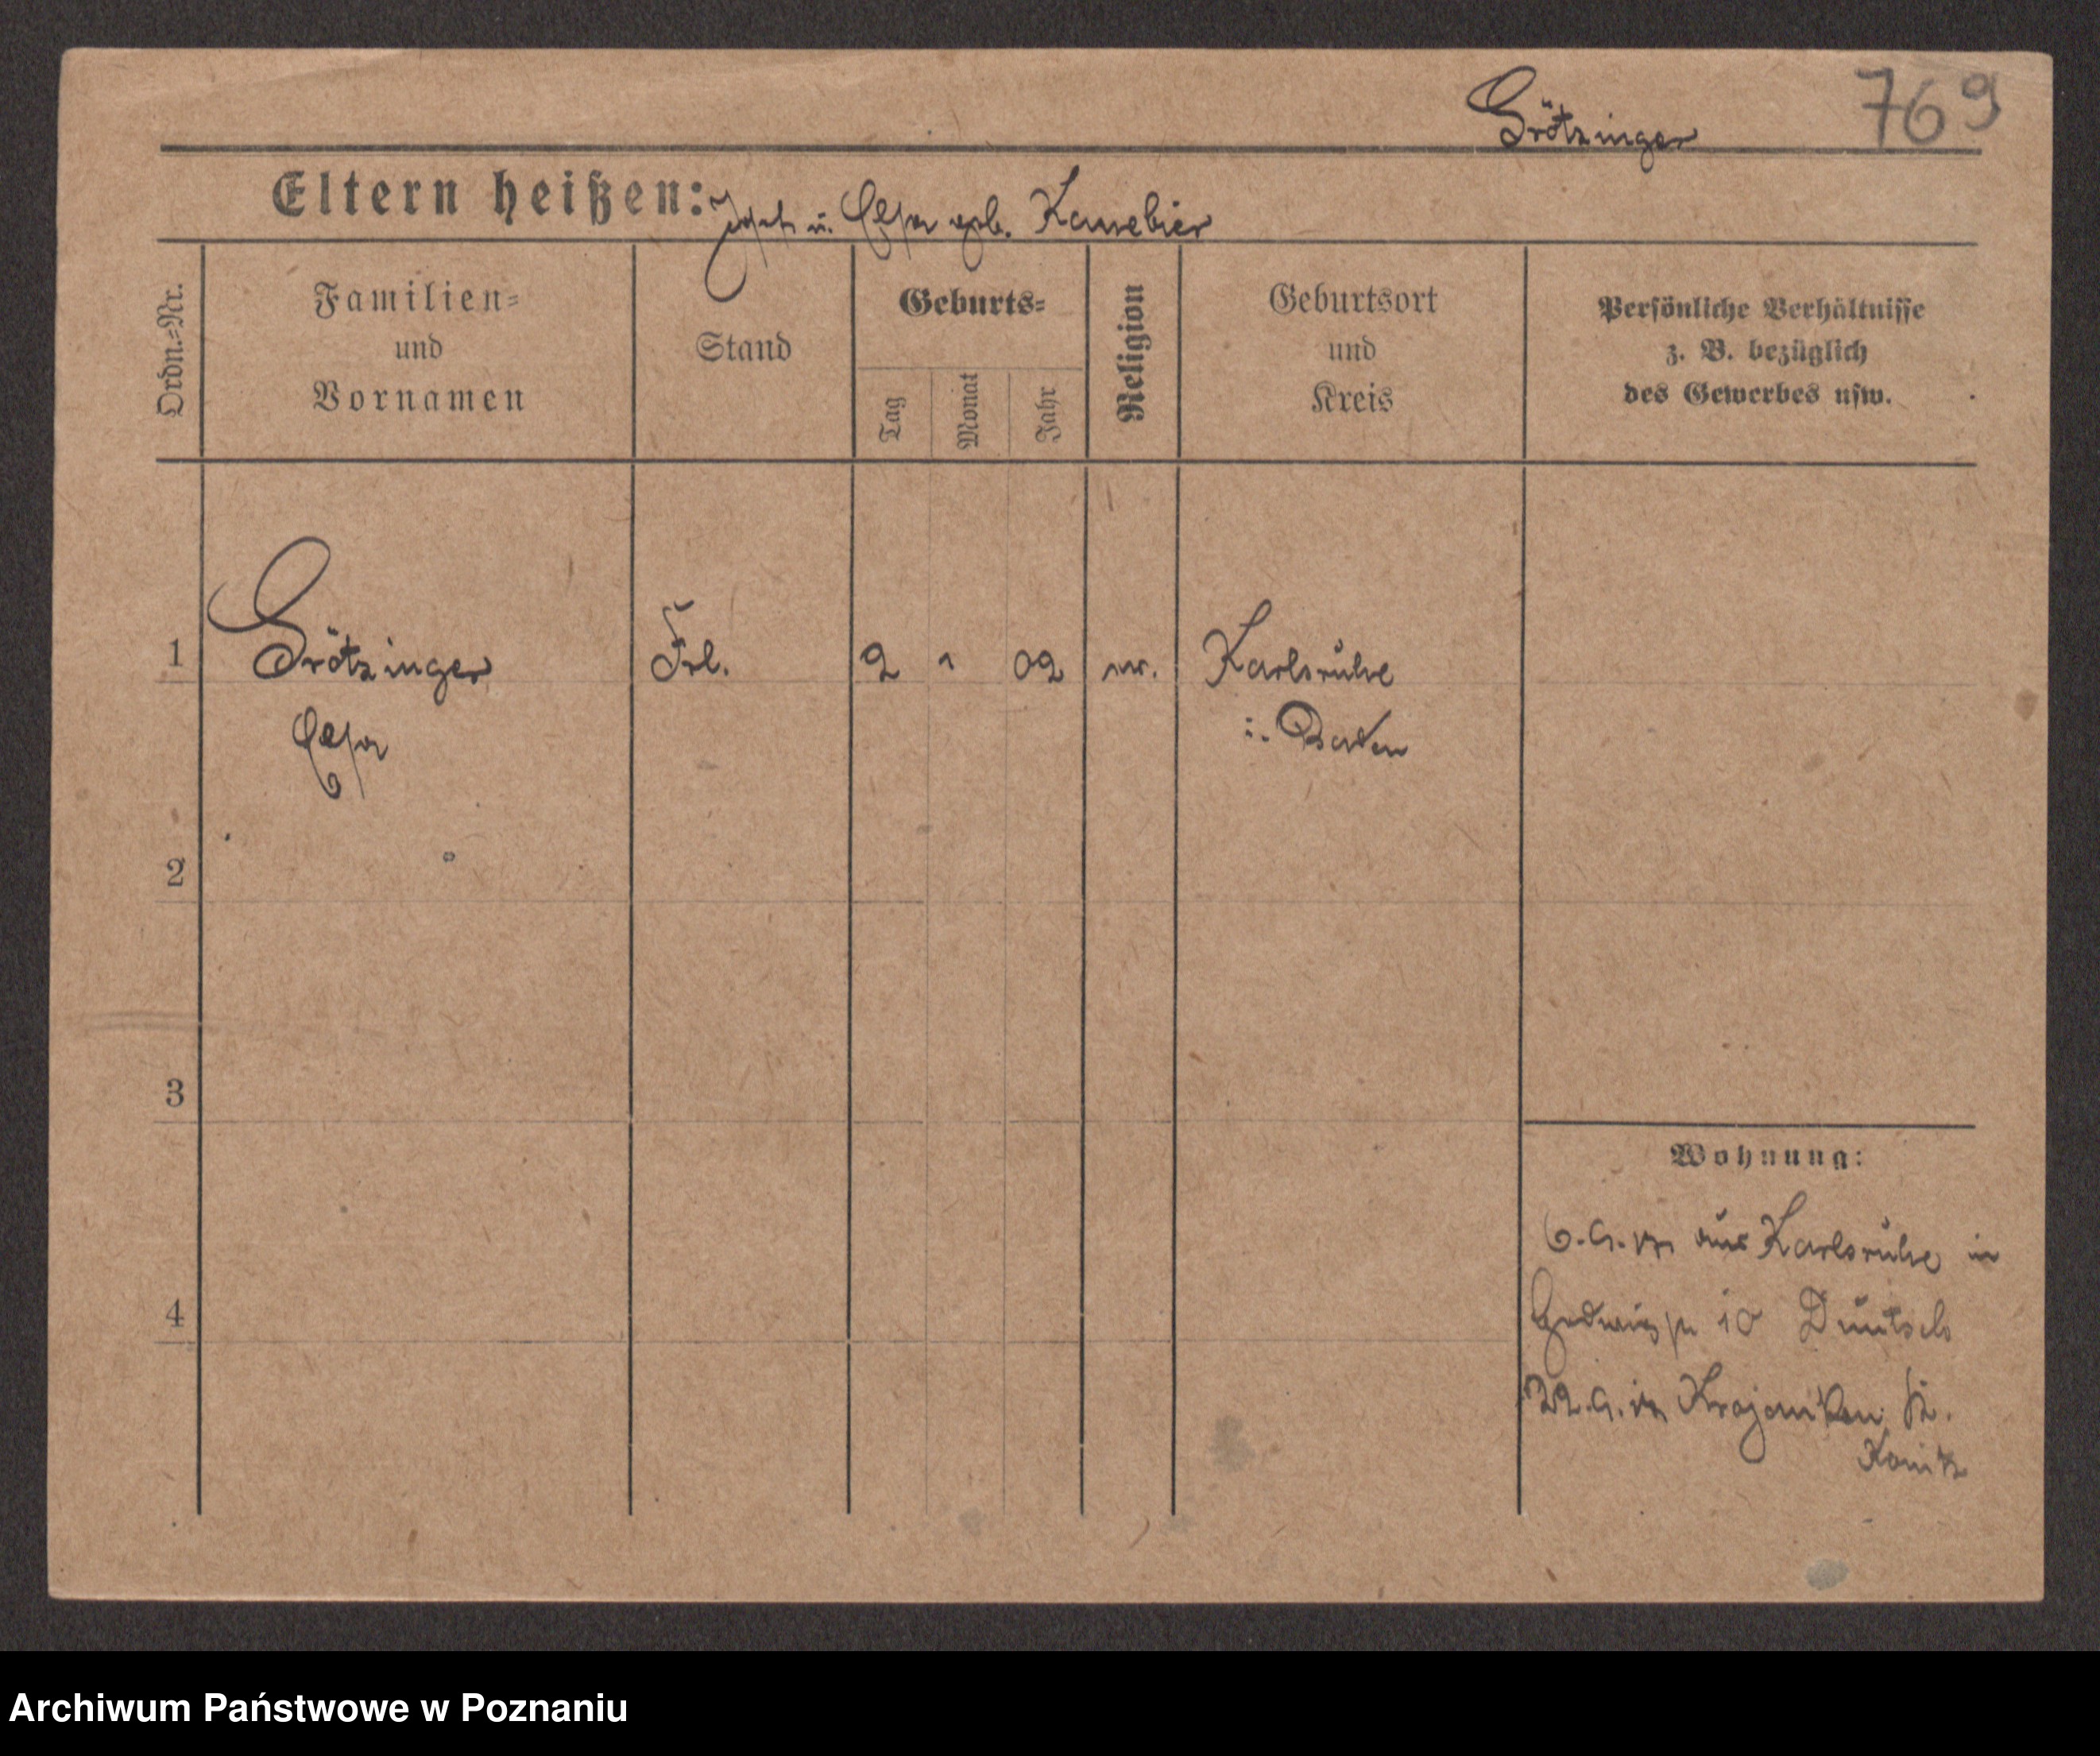 Grötzinger 769
Eltern heißen: u. Elsa geb. Kanebier
Ordn.=Nr.
Familien=
und
Vornamen
Stand
Geburts=
Tag
Monat
Jahr
Religion
Geburtsort
und
Kreis
Persönliche Verhältnisse
z. B. bezüglich
des Gewerbes usw.
1 Grötzinger Frl. 2 1 02 Karlsruhe
Elsa i. Baden
2
3
4
Wohnung:
6.9.17 aus Karlsruhe in
10
22.9.17 Krojanken
Konitz
Archiwum Państwowe w Poznaniu